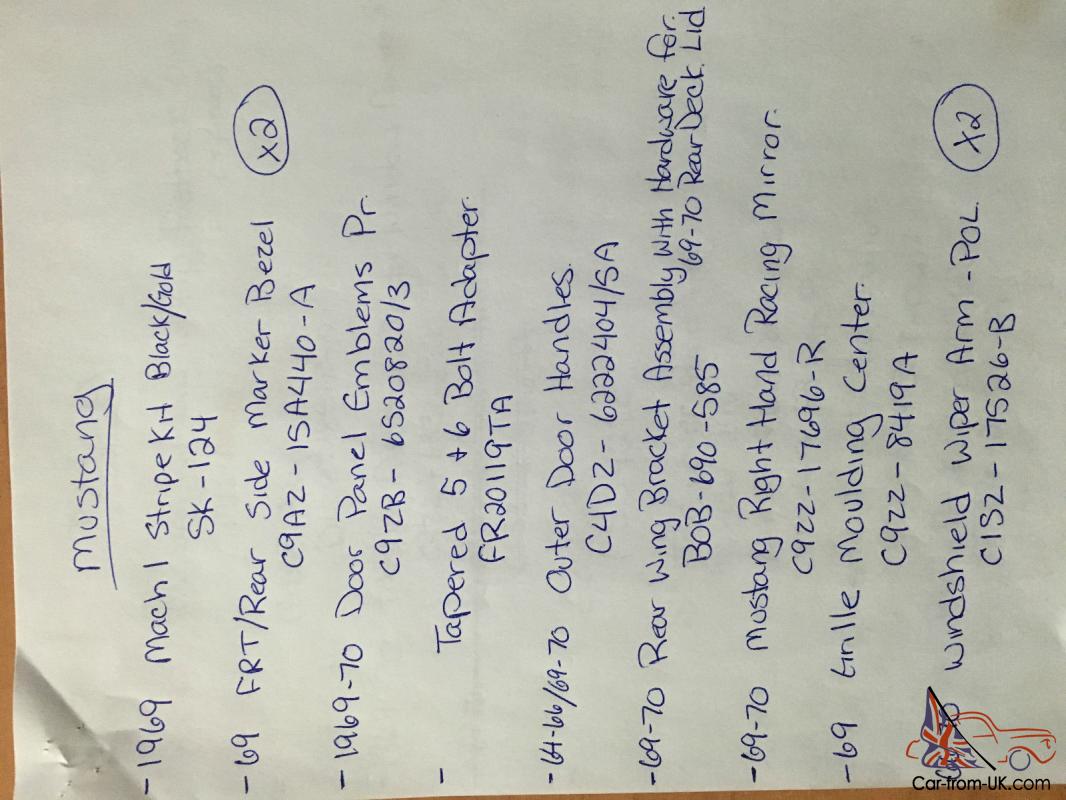 Mustang
- 1969 Mach 1 Stripe Kit Black/Gold
SK-124
- 69 FRT/Rear Side Marker Bezel X2
C9AZ-15A440-A
- 1969-70 Door Panel Emblems Pr.
C9ZB-6520820/3
- Tapered 5 + 6 Bolt Adapter.
FR20119TA
- 64-66/69-70 Outer Door Handles.
C4DZ-6222404/5A
- 69-70 Rear Wing Bracket Assembly With Hardware for.
BOB-690-585 69-70 Rear Deck Lid
- 69-70 Mustang Right Hand Racing Mirror.
C9ZZ-17696-R
- 69 Grille Moulding Center.
C9ZZ-8419A
70 Windshield Wiper Arm - POL. X2
C1SZ-17526-B
Car-from-UK.com